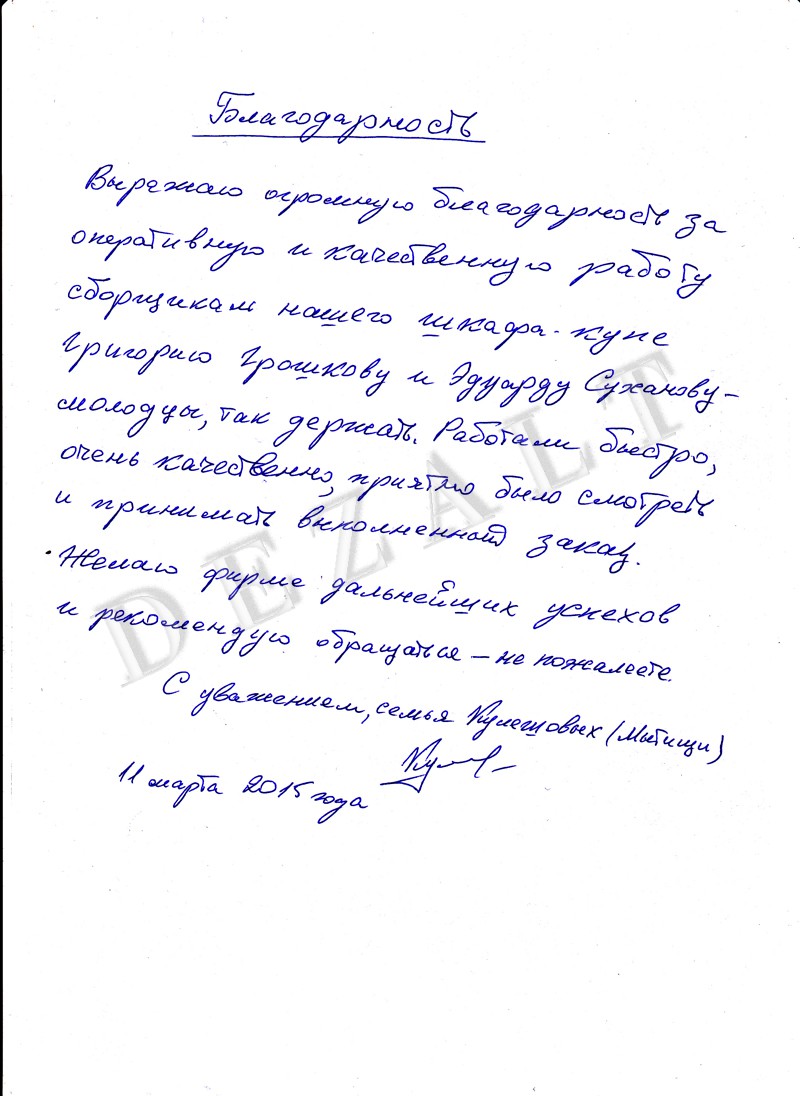 Благодарность
Выражаю огромную благодарность за
оперативную и качественную работу
сборщикам нашего шкафа-купе
Григорию Грошкову и Эдуарду Суханову –
молодцы, так держать. Работали быстро,
очень качественно, приятно было смотреть
и принимать выполненный заказ.
Желаю фирме дальнейших успехов
и рекомендую обращаться – не пожалеете.
С уважением, семья Кулешовых (Мытищи)
11 марта 2015 года
DEZALT